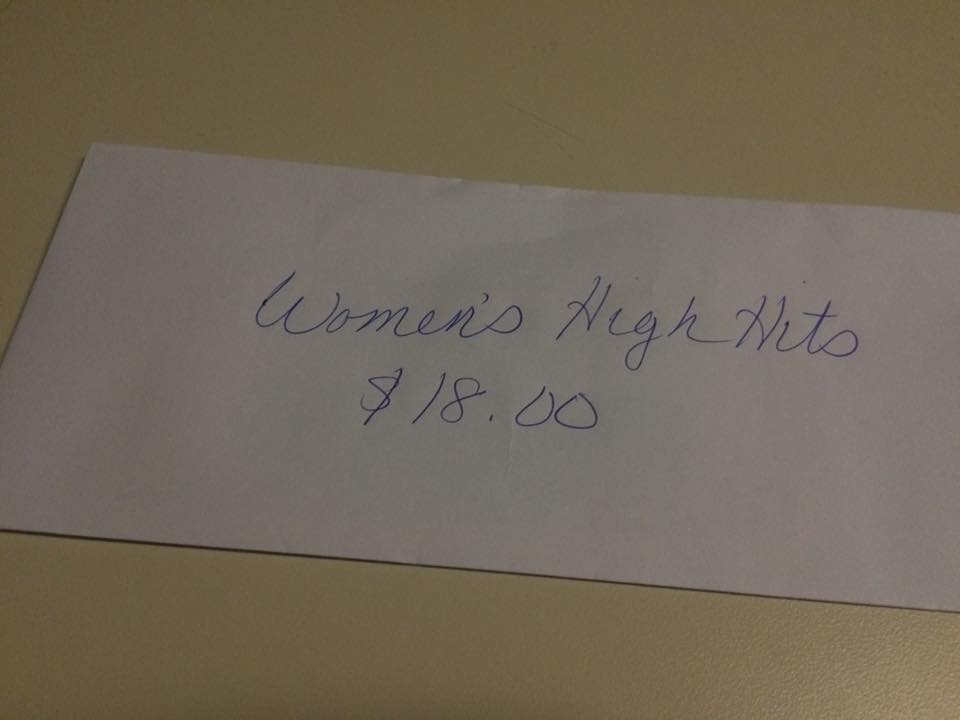 Women's High Hits
$18.00